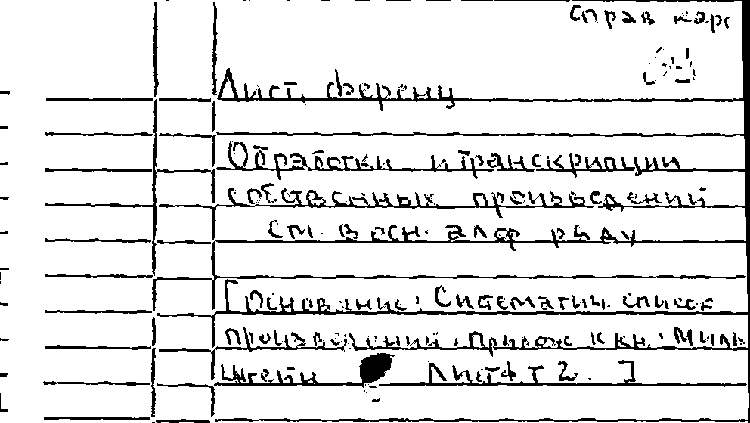 Справ карт
Лист, Ференц
Обработки и транскрипции
собственных произведений
см. в осн. алф ряду
[Основание: Систематич. список
произведений. прилож к кн: Миль
штейн Лист Ф т 2. ]